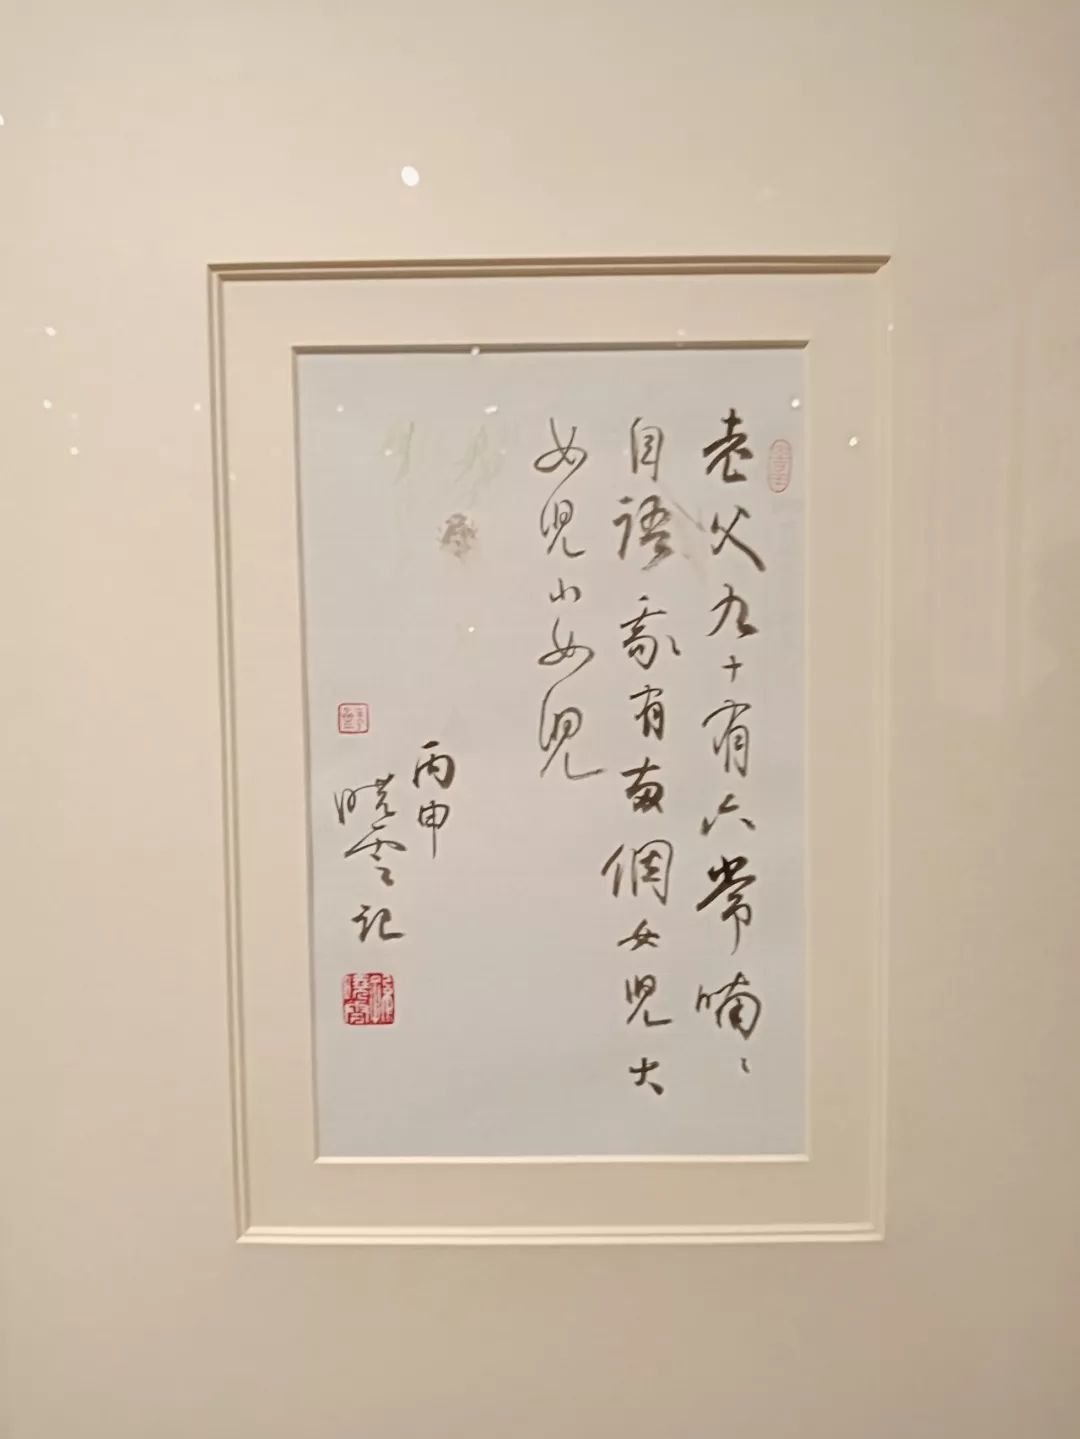 老父九十有六常喃々
自语我有两個女兒大
女兒小女兒
丙申
晓雲记